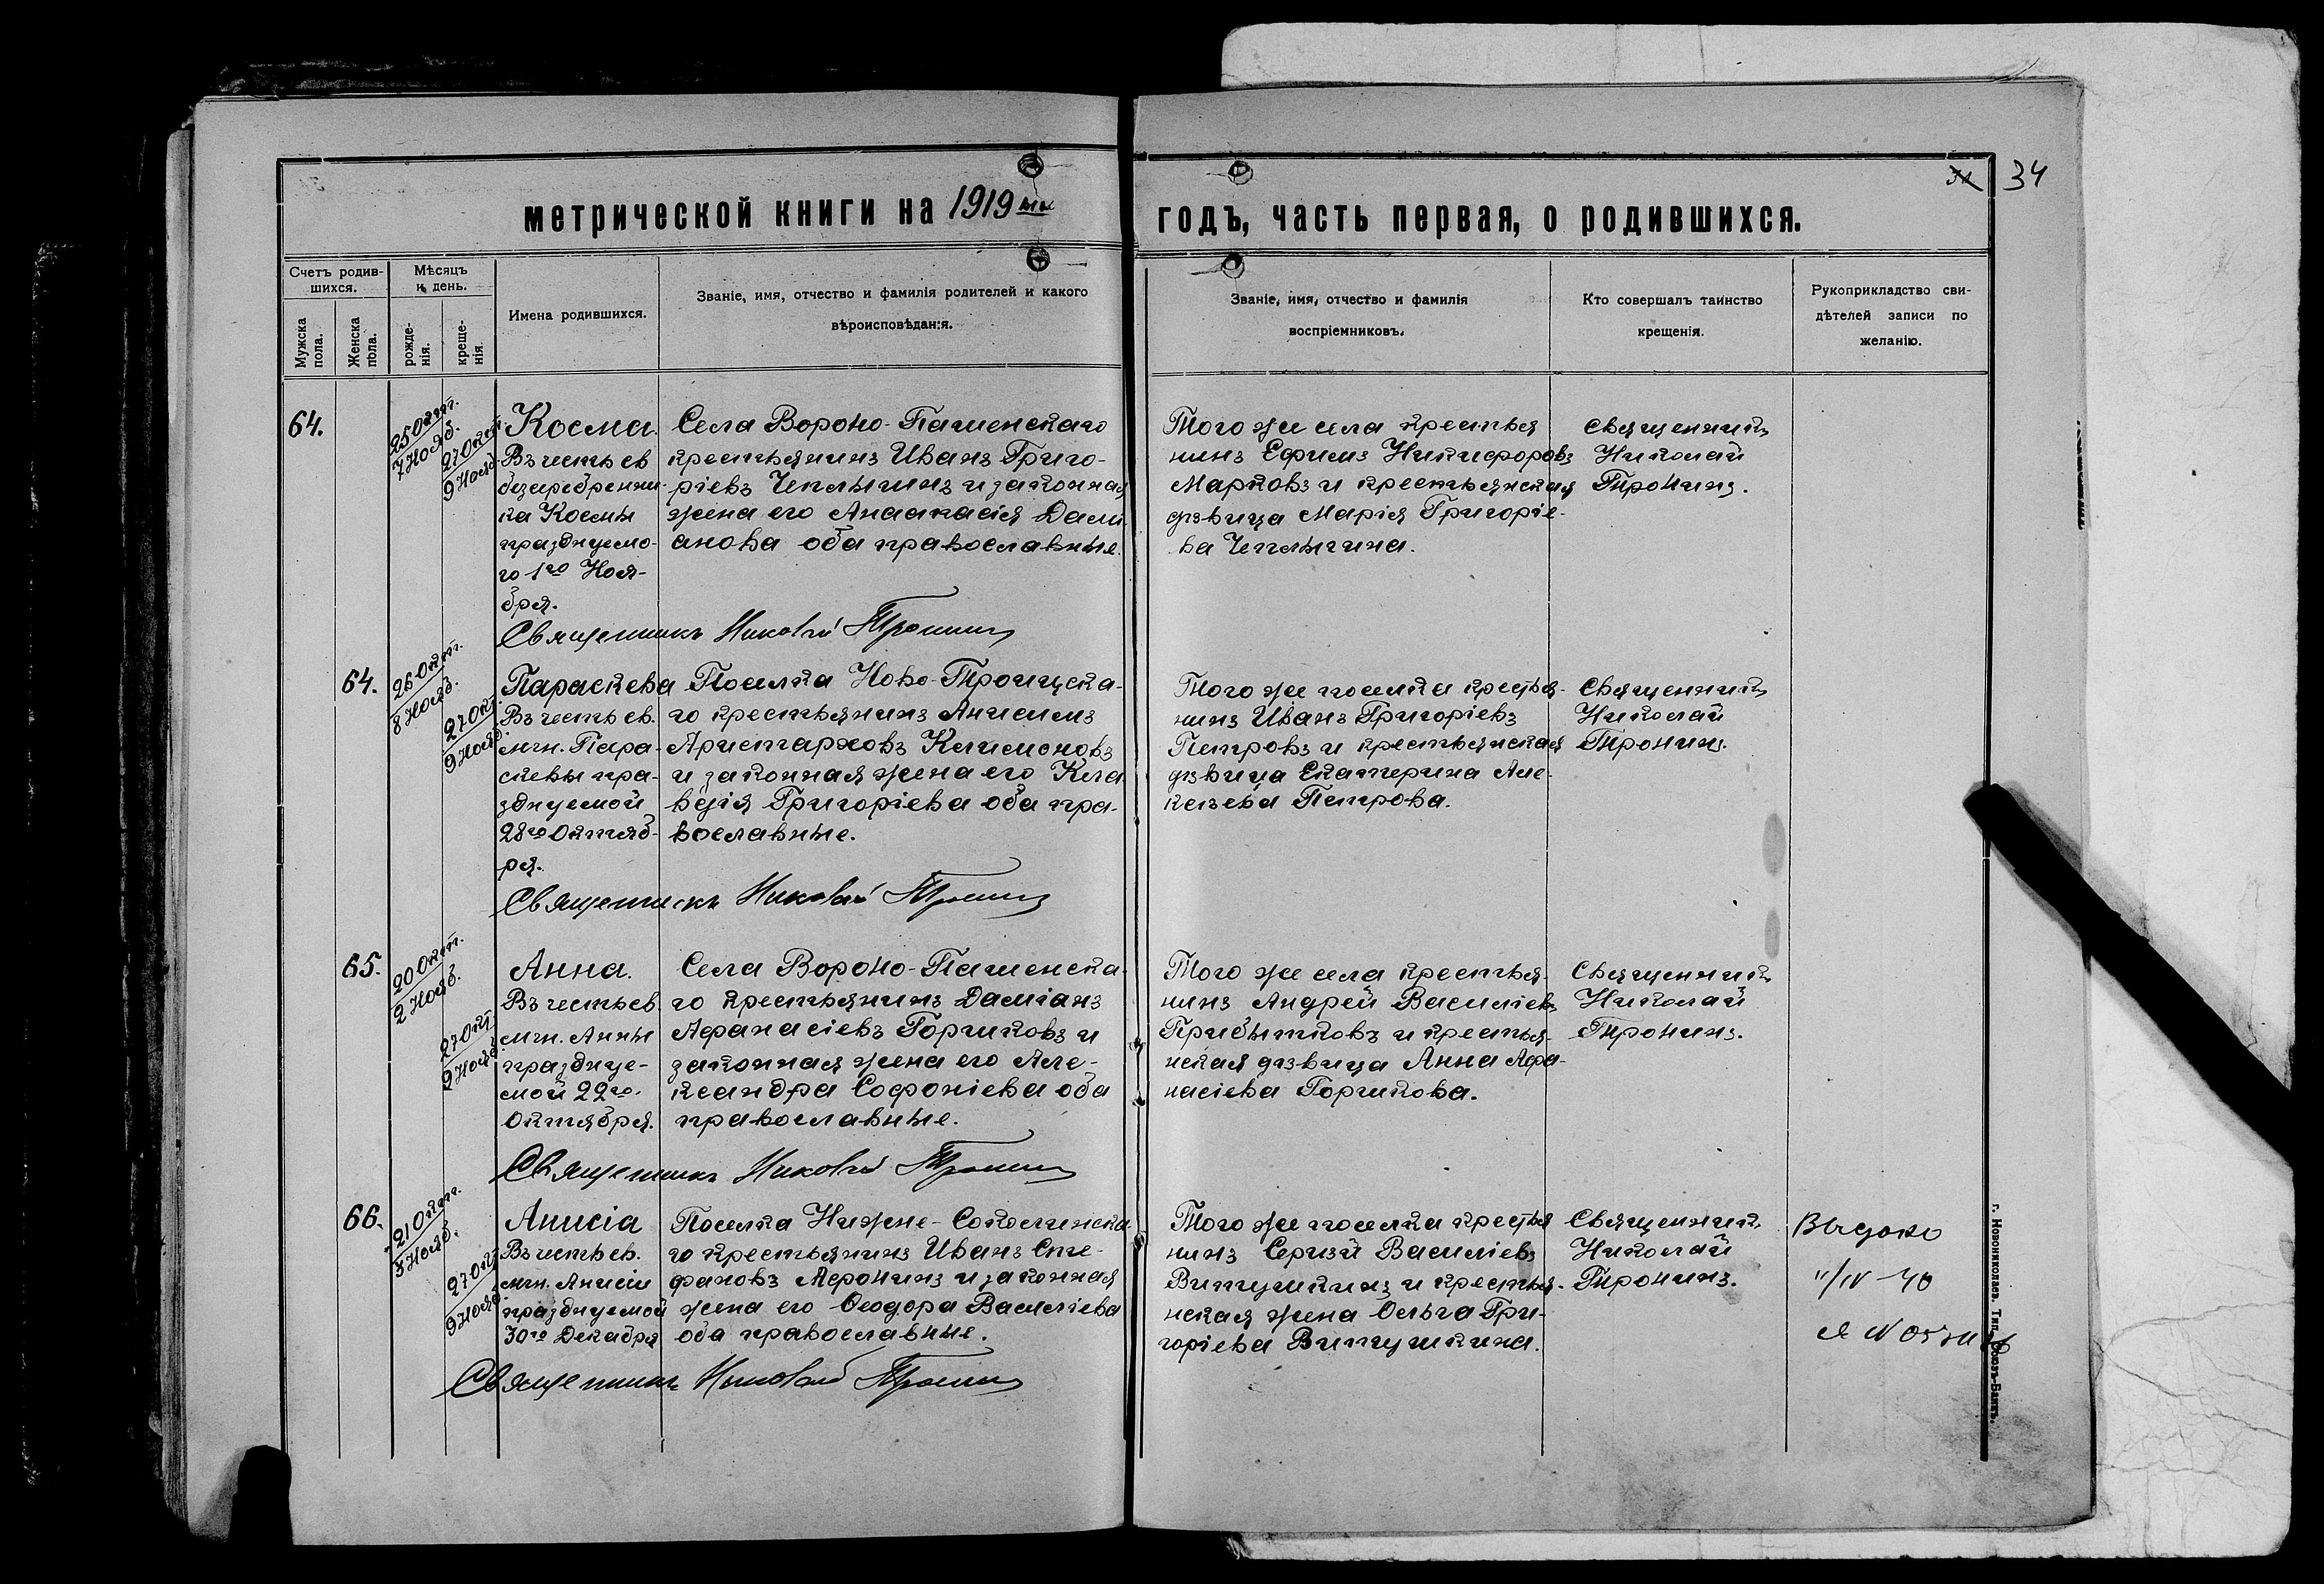 метрической книги на 1919 ый
годъ, часть первая, о родившихся.
34
Счетъ родив-
шихся.
Мужска
пола.
Женска
пола.
Мѣсяцъ
и день.
рожде-
нія.
креще-
нія
Имена родившихся.
Званіе, имя, отчество и фамилія родителей и какого
вѣроисповѣданія.
Званіе, имя, отчество и фамилія
воспріемниковъ.
Кто совершалъ таинство
крещенія.
Рукоприкладство сви-
дѣтелей записи по
желанію.
64.
25 Окт.
7 Нояб.
27 Окт.
9 Нояб.
Косма.
Въ честь св
безсребренни-
ка Космы
празднуемо-
го 1го Ноя-
бря.
Села Вороно-Пашенскаго
крестьянинъ Иванъ Григо-
ріевъ Чеплыгинъ и законная
жена его Анастасія Дами-
анова оба православные.
Того же села крестья
нинъ Ефимъ Никифоровъ
Марковъ и крестьянская
дѣвица Марія Григоріе-
ва Чеплыгина.
Священникъ
Николай
Тронинъ.
Священникъ Николай Тронинъ
64.
26 Окт.
8 Нояб.
27 Окт.
9 Нояб.
Параскева
Въ честь св.
мчн. Пара-
скевы пра-
зднуемой
28го Октяб-
ря.
Поселка Ново-Троицка-
го крестьянинъ Анисимъ
Аристарховъ Климоновъ
и законная жена его Кла
вдія Григоріева оба пра-
вославные.
Того же поселка крестья-
нинъ Иванъ Григоріевъ
Петровъ и крестьянская
дѣвица Екатерина Але-
ксѣева Петрова.
Священникъ
Николай
Тронинъ.
Священникъ Николай Тронинъ
65.
20 Окт.
2 Нояб.
27 Окт.
9 Нояб.
Анна.
Въ честь св.
мчн. Анны
праздуе-
мой 22го.
Октября.
Села Вороно-Пашенска-
го крестьянинъ Даміанъ
Афанасіевъ Горшковъ и
законная жена его Але-
ксандра Софоніева оба
православные.
Того же села крестья-
нинъ Андрей Василіевъ
Прибытковъ и крестья-
нская дѣвица Анна Афа-
насіева Горшкова.
Священникъ
Николай
Тронинъ.
Священникъ Николай Тронинъ
66.
21 Окт.
3 Нояб.
27 Окт.
9 Нояб.
Анисіа
Въ честь св.
мчн. Анисіи
празднуемой
30го Декабря
Поселка Нижне-Соколинска
го крестьянинъ Иванъ Сте-
фановъ Афонинъ и законная
жена его Ѳеодора Василіева
оба православные.
Того же поселка крестья
нинъ Сергѣй Василіевъ
Витушкинъ и крестья-
нская жена Ольга Гри-
горіева Витушкина.
Священникъ
Николай
Тронинъ.
Священникъ Николай Тронинъ
г. Новониколаев. Тип. „Союзъ-Банкъ.